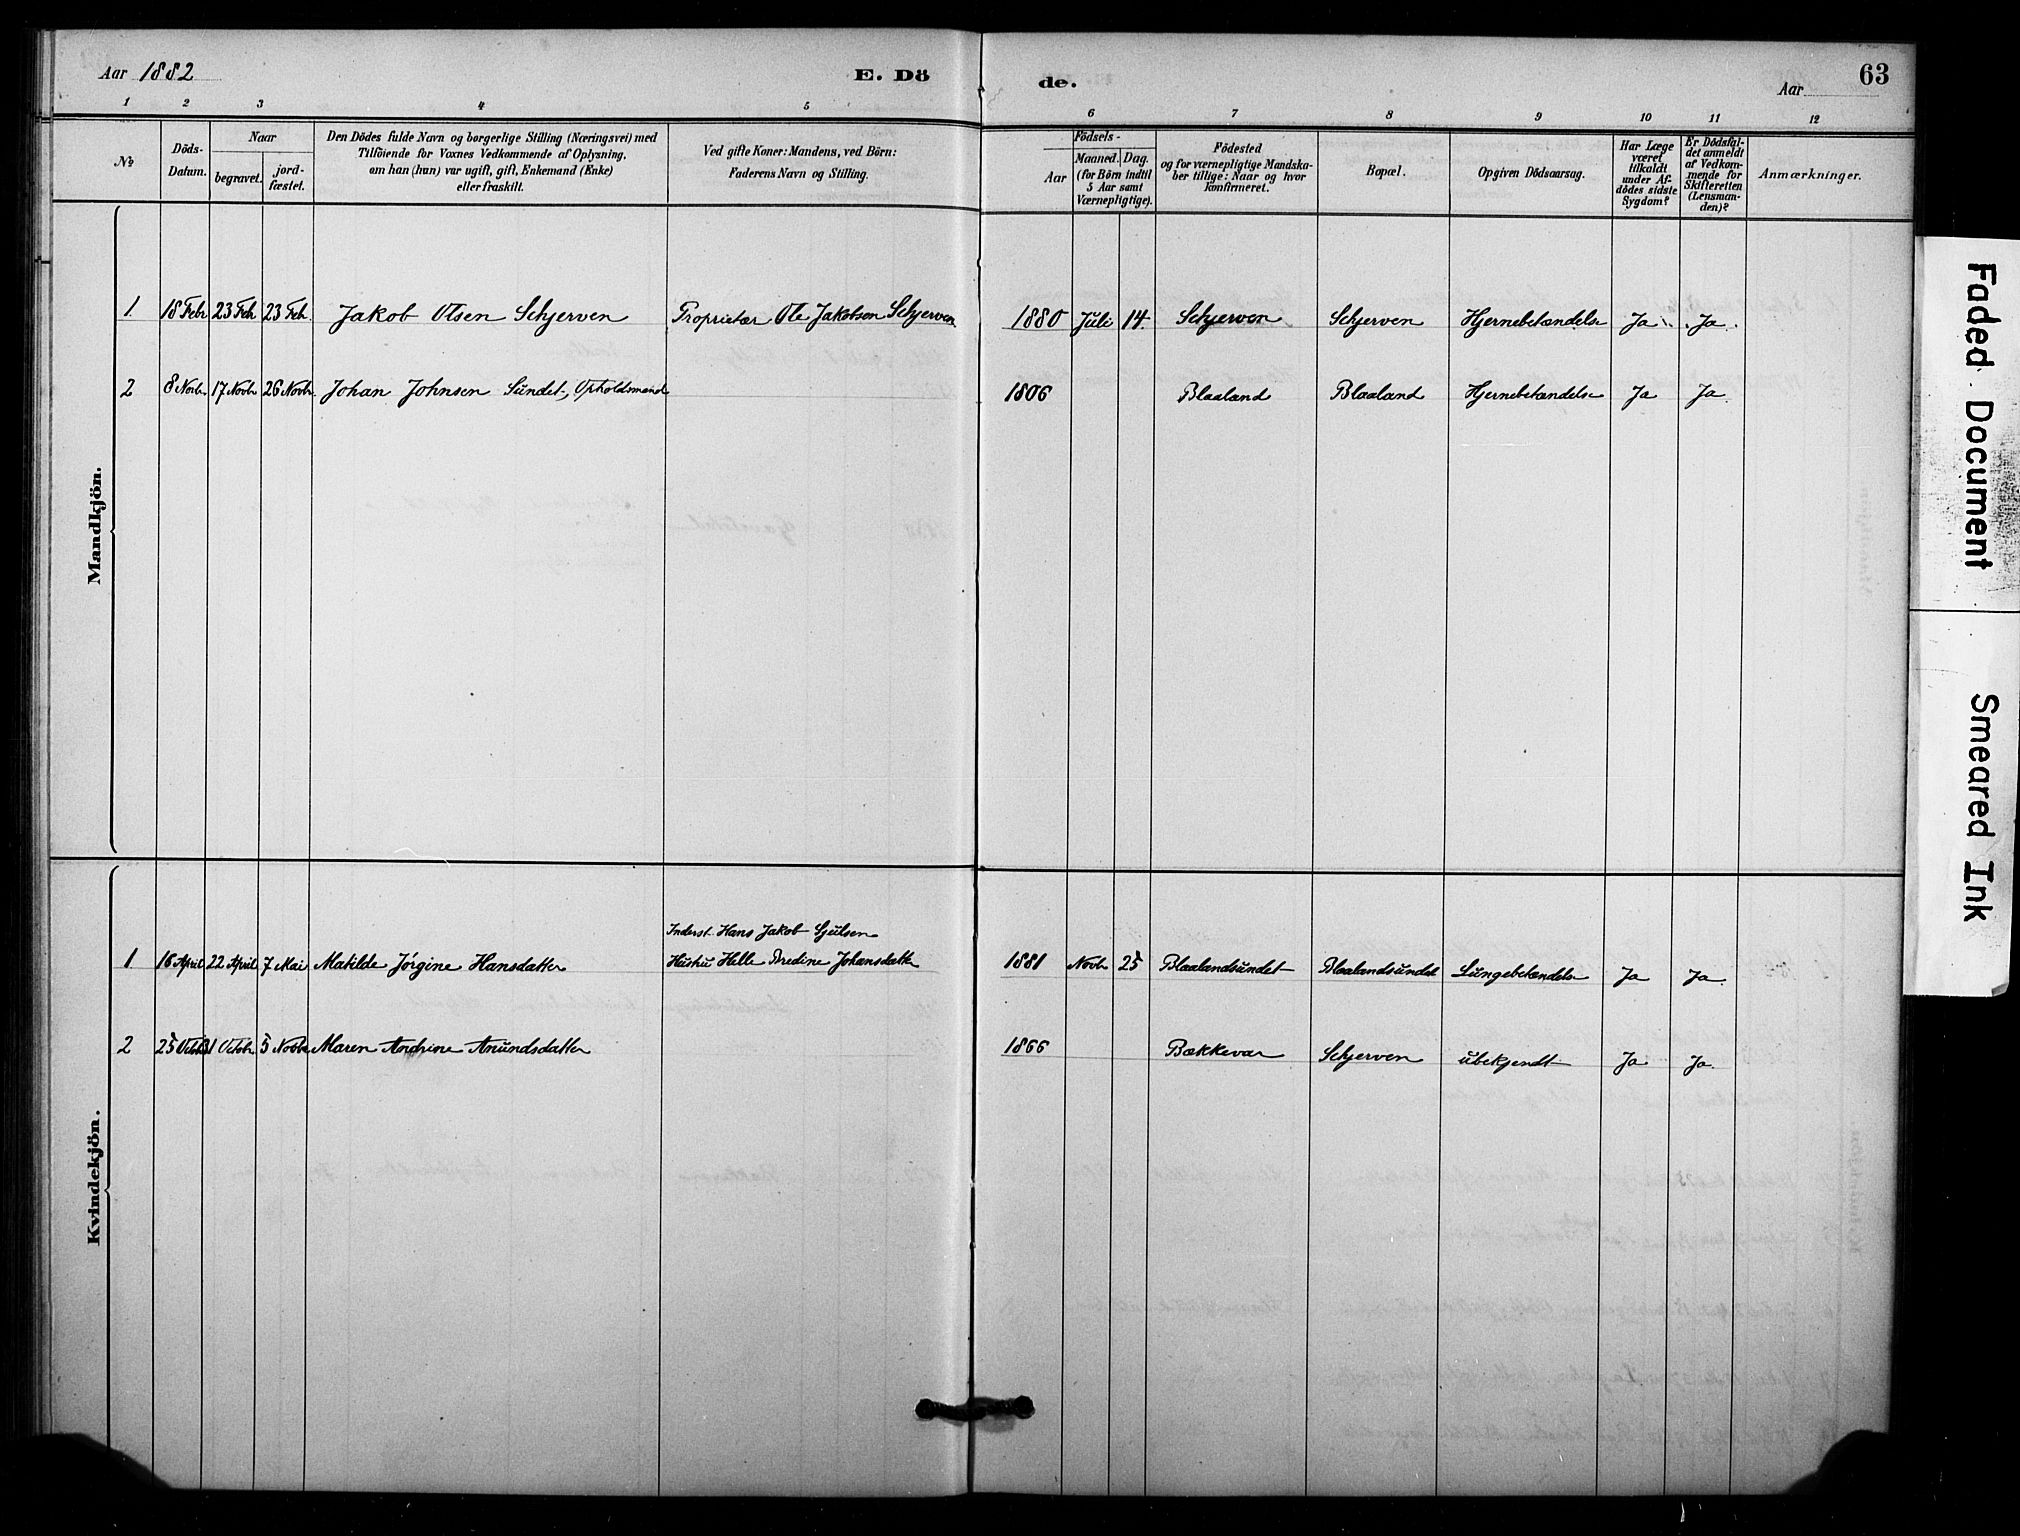 Aar 1882 E. Dö de. Aar 63
1 2 3 4 5 6 7 8 9 10 11 12
No
Döds-
Datum.
Naar
begravet.
jord-
fæstet.
Den Dödes fulde Navn og borgerlige Stilling (Næringsvei) med
Tilföiende for Voxnes Vedkommende af Oplysning,
om han (hun) var ugift, gift, Enkemand (Enke)
eller fraskilt.
Ved gifte Koner: Mandens, ved Börn:
Faderens Navn og Stilling.
Födsels-
Aar
Maaned. Dag.
(for Börn indtil
5 Aar samt
Værnepligtige).
Födested
og for værnepligtige Mandska-
ber tillige: Naar og hvor
konfirmeret.
Bopæl.
Opgiven Dödsaarsag.
Har Læge
været
tilkaldt
under Af-
dödes sidste
Sygdom?
Er Dödsfal-
det anmeldt
af Vedkom-
mende for
Skifteretten
(Lensman-
den)?
Anmærkninger.
Mandkjön.
1 18 Febr 23 Feb. 23 Feb. Jakob Olsen Schjerven Proprietær Ole Jakobsen Schjerven 1880 Juli 14 Schjerven Schjerven Hjernebetændelse Ja Ja.
2 8 Novbr. 17 Novbr 26 Novbr. Johan Johnsen Sundet, Opholdsmand 1806 Blaaland Blaaland Hjernebetændelse Ja Ja.
Kvindekjön.
Inderst Hans Jakob
1 18 April 22 April 7 Mai Matilde Jørgine Hansdatter Hustru Helle Johansdatter 1881 Novbr 25 Blaalandsundet Blaalandsundet Lungebetændelse Ja Ja.
2 25 Octob 31 Octobr 5 Novbr Maren Andrine Anundsdatter 1866 Bækkevar Schjerven ubekjendt Ja Ja.
Faded Document
Smeared Ink